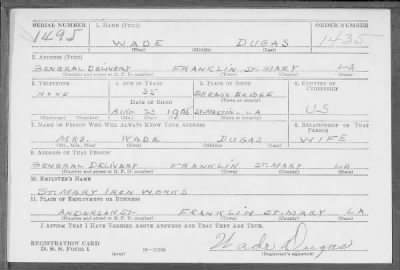 SERIAL NUMBER 1. NAME (Print) ORDER NUMBER
1495 WADE DUGAS 1435
(First) (Middle) (Last)
2. ADDRESS (Print)
GENERAL DELIVERY FRANKLIN ST. MARY LA
(Number and street or R. F. D. number) (Town) (County) (State)
3. TELEPHONE 4. AGE IN YEARS 5. PLACE OF BIRTH 6. COUNTRY OF CITIZENSHIP
NONE 35 BREAUX BRIDGE
DATE OF BIRTH (Town or county)
AUG 23 1905 ST. MARTIN LA US
(Exchange) (Number) (Mo.) (Day) (Yr.) (State or country)
7. NAME OF PERSON WHO WILL ALWAYS KNOW YOUR ADDRESS 8. RELATIONSHIP OF THAT PERSON
MRS. WADE DUGAS WIFE
(Mr., Mrs., Miss) (First) (Middle) (Last)
9. ADDRESS OF THAT PERSON
GENERAL DELIVERY FRANKLIN ST. MARY LA
(Number and street or R. F. D. number) (Town) (County) (State)
10. EMPLOYER'S NAME
ST. MARY IRON WORKS
11. PLACE OF EMPLOYMENT OR BUSINESS
ANDERSON ST. FRANKLIN ST. MARY LA
(Number and street or R. F. D. number) (Town) (County) (State)
I AFFIRM THAT I HAVE VERIFIED ABOVE ANSWERS AND THAT THEY ARE TRUE.
REGISTRATION CARD
D. S. S. Form 1 (over) 16-17105 Wade Dugas
(Registrant's signature)